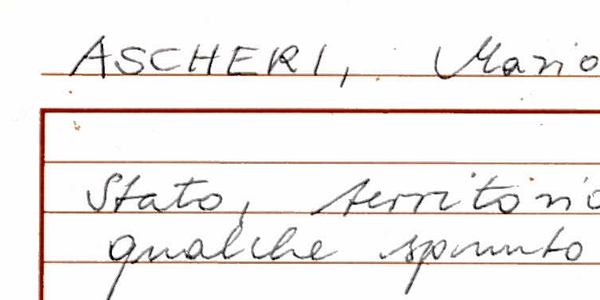 ASCHERI, Mario
Stato, territorio
qualche spunto